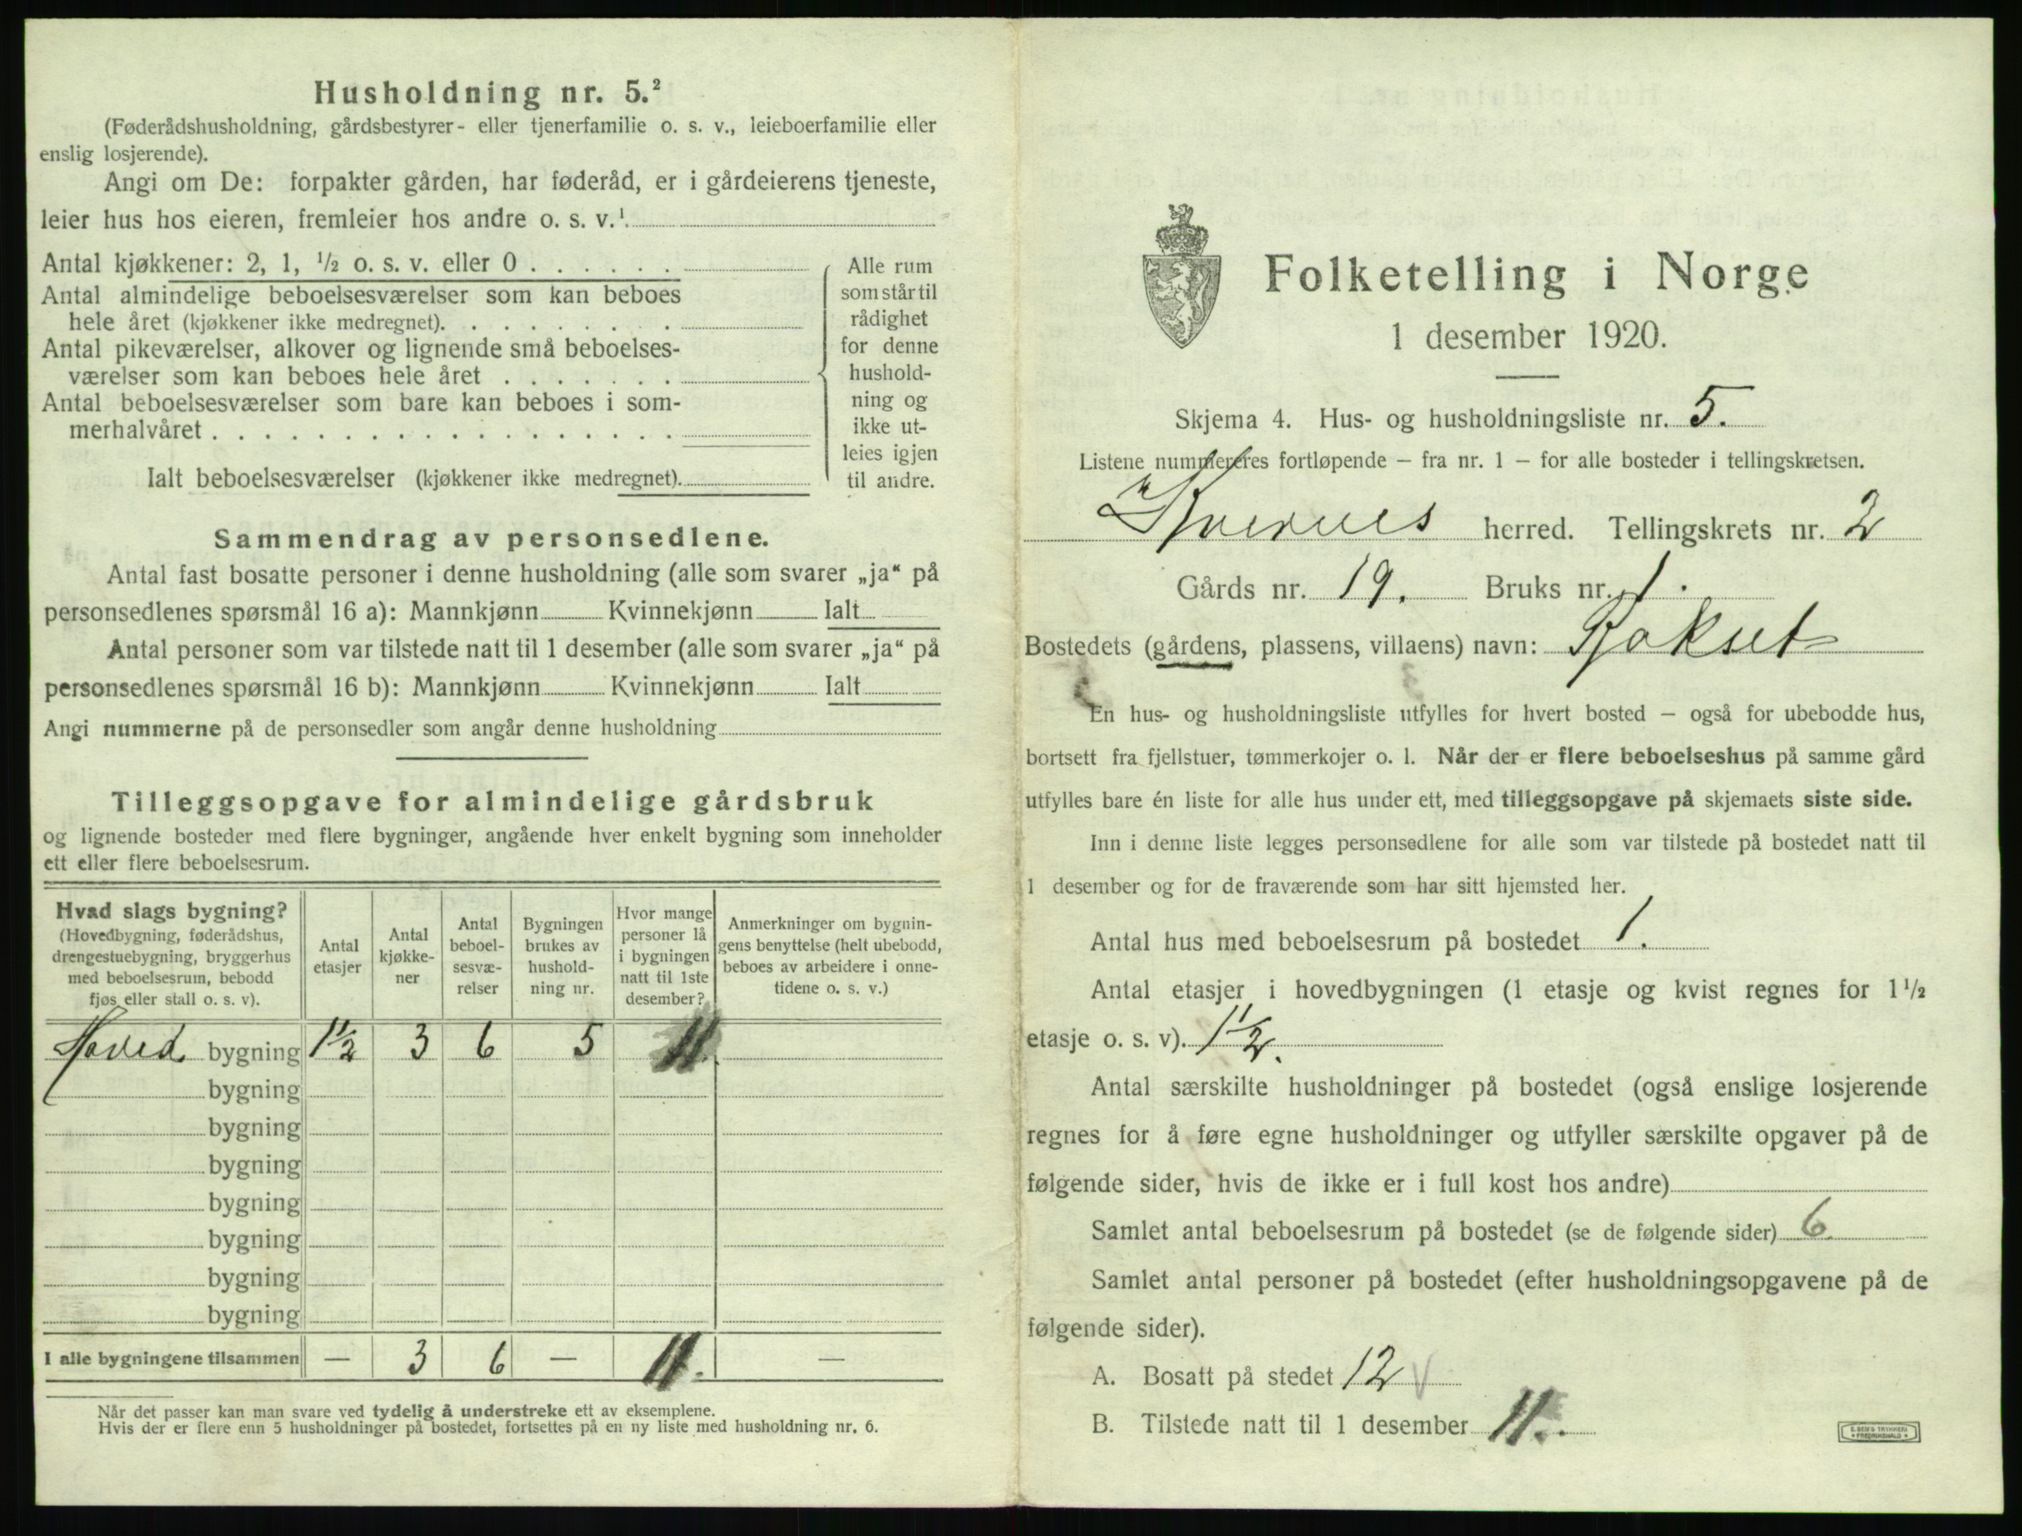 Husholdning nr. 5.²
(Føderådshusholdning, gårdsbestyrer- eller tjenerfamilie o. s. v., leieboerfamilie eller
enslig losjerende).
Angi om De: forpakter gården, har føderåd, er i gårdeierens tjeneste,
leier hus hos eieren, fremleier hos andre o. s. v.¹
Antal kjøkkener: 2, 1, ½ o. s. v. eller 0 . . . . . .
Antal almindelige beboelsesværelser som kan beboes
hele året (kjøkkener ikke medregnet). . . . . . . . .
Antal pikeværelser, alkover og lignende små beboelses-
værelser som kan beboes hele året . . . . . . .
Antal beboelsesværelser som bare kan beboes i som-
merhalvåret . . . . . . . . . . . . . . . . . .
Ialt beboelsesværelser (kjøkkener ikke medregnet).
Alle rum
som står til
rådighet
for denne
hushold-
ning og
ikke ut-
leies igjen
til andre.
Sammendrag av personsedlene.
Antal fast bosatte personer i denne husholdning (alle som svarer „ja“ på
personsedlenes spørsmål 16 a): Mannkjønn Kvinnekjønn Ialt
Antal personer som var tilstede natt til 1 desember (alle som svarer „ja“ på
personsedlenes spørsmål 16 b): Mannkjønn Kvinnekjønn Ialt
Angi nummerne på de personsedler som angår denne husholdning
Tilleggsopgave for almindelige gårdsbruk
og lignende bosteder med flere bygninger, angående hver enkelt bygning som inneholder
ett eller flere beboelsesrum.
Hvad slags bygning?
(Hovedbygning, føderådshus,
drengestuebygning, bryggerhus
med beboelsesrum, bebodd
fjøs eller stall o. s. v).
Antal
etasjer
Antal
kjøkke-
ner
Antal
beboel-
sesvæ-
relser
Bygningen
brukes av
hushold-
ning nr.
Hvor mange
personer lå
i bygningen
natt til 1ste
desember?
Anmerkninger om bygnin-
gens benyttelse (helt ubebodd,
beboes av arbeidere i onne-
tidene o. s. v.)
Hoved bygning 1½ 3 6 5 11.
bygning
bygning
bygning
bygning
bygning
bygning
bygning
I alle bygningene tilsammen — 3 6 — 11. —
Når det passer kan man svare ved tydelig å understreke ett av eksemplene.
Hvis der er flere enn 5 husholdninger på bostedet, fortsettes på en ny liste med husholdning nr. 6.
Folketelling i Norge
1 desember 1920.
Skjema 4. Hus- og husholdningsliste nr. 5.
Listene nummereres fortløpende – fra nr. 1 – for alle bosteder i tellingskretsen.
Kvernes herred. Tellingskrets nr. 2
Gårds nr. 19. Bruks nr. 1.
Bostedets (gårdens, plassens, villaens) navn: Rokset
En hus- og husholdningsliste utfylles for hvert bosted – også for ubebodde hus,
bortsett fra fjellstuer, tømmerkojer o. l. Når der er flere beboelseshus på samme gård
utfylles bare én liste for alle hus under ett, med tilleggsopgave på skjemaets siste side.
Inn i denne liste legges personsedlene for alle som var tilstede på bostedet natt til
1 desember og for de fraværende som har sitt hjemsted her.
Antal hus med beboelsesrum på bostedet 1.
Antal etasjer i hovedbygningen (1 etasje og kvist regnes for 1½
etasje o. s. v). 1½.
Antal særskilte husholdninger på bostedet (også enslige losjerende
regnes for å føre egne husholdninger og utfyller særskilte opgaver på de
følgende sider, hvis de ikke er i full kost hos andre)
Samlet antal beboelsesrum på bostedet (se de følgende sider) 6
Samlet antal personer på bostedet (efter husholdningsopgavene på de
følgende sider).
A. Bosatt på stedet 12 v
B. Tilstede natt til 1 desember 11.